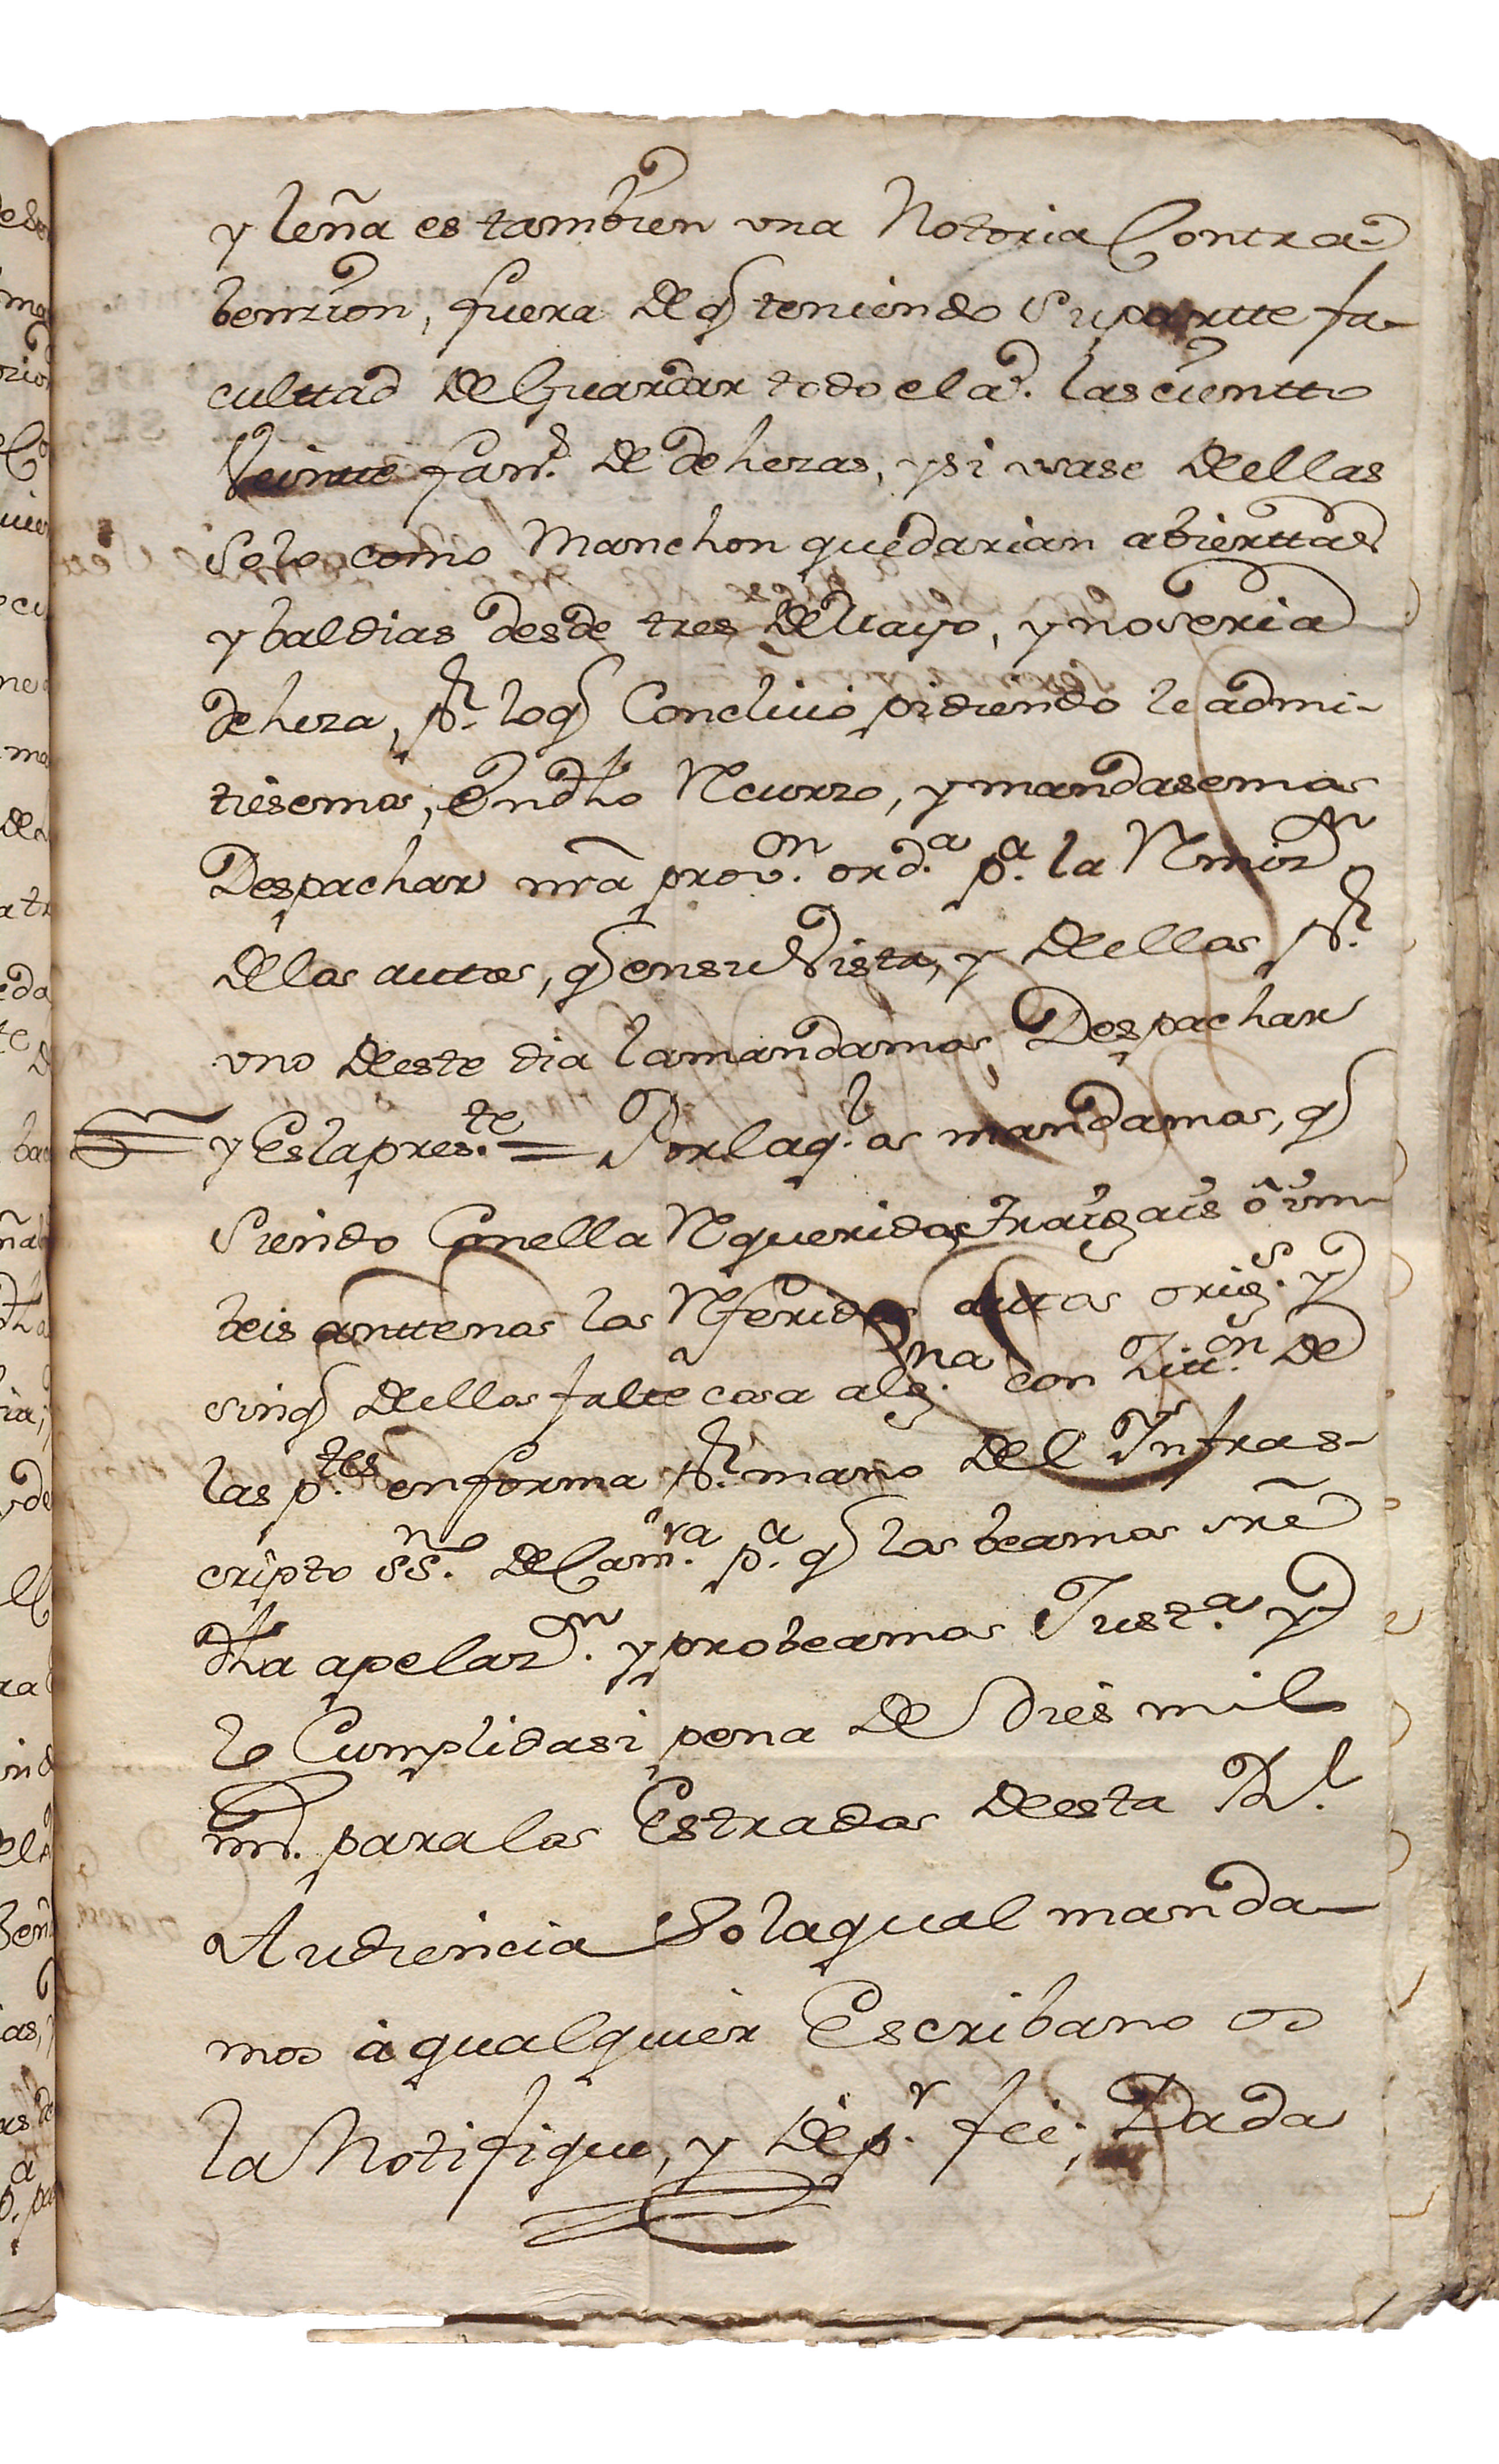 y leña es tambien vna Notoria Contra-
benzion, fuera de q teniendo su partte fa-
culttad de Guardar todo el a.º las cientto
Veintte fan.s de dehezas, y si vsase de ellas
solo como Manchon quedarian abierttas
y baldias desde tres de Mayo, y no seria
deheza, p.r lo q Concluió pidiendo le admi-
tiesemos, en dho Recurzo, y mandasemos
Despachar nrã prov.on ord.a p.a la Remiz.on
de los autos, q en su Vista, y de ellos p.r
vno de este dia la mandamos Despachar
y Es la pres.te = Por la q.l os mandamos, q
siendo Con ella Requeridos Traigais ô im-
beis antte nos los Referidos auttos orig.s y
sin q de ellos faltte cosa alg.na con Zitt.on de
las p.tes en forma p.r mano del Infras-
cripto ss.no de Cam.ra p.a q los beamos sre
dha apelaz.on y probeamos Just.a y
lo Cumplid asi pena de Diés mil
mrs. para los Estrados de esta R.l
Audiencia So la qual manda-
mos à qualquier Escribano os
la Notifique, y de p.r feé; Dada